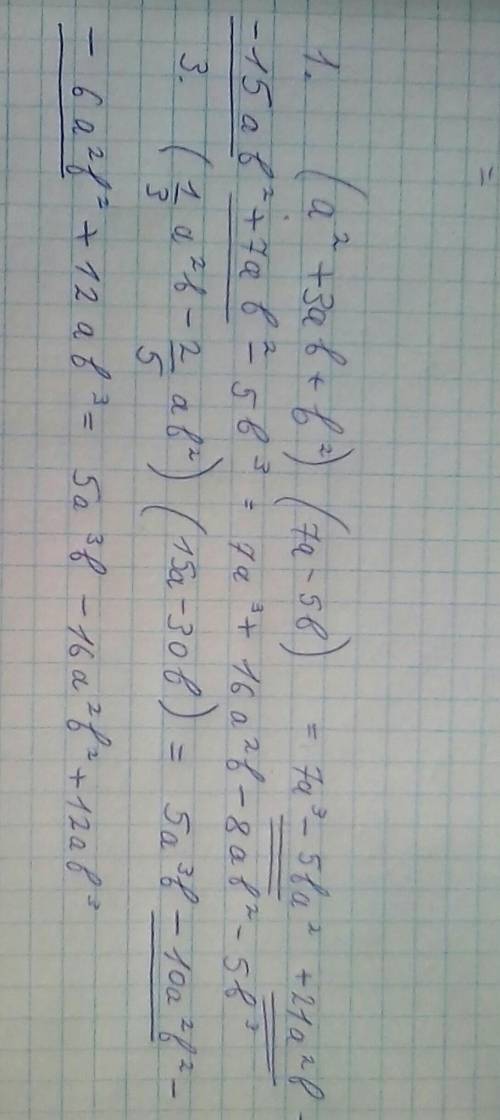 =
1. (a² + 3ab + b²) (7a - 5b) = 7a³ - 5ba² + 21a²b -
- 15ab² + 7ab² - 5b³ = 7a³ + 16a²b - 8ab² - 5b³
3. (1/3 a²b - 2/5 ab²) (15a - 30b) = 5a³b - 10a²b² -
- 6a²b² + 12ab³ = 5a³b - 16a²b² + 12ab³